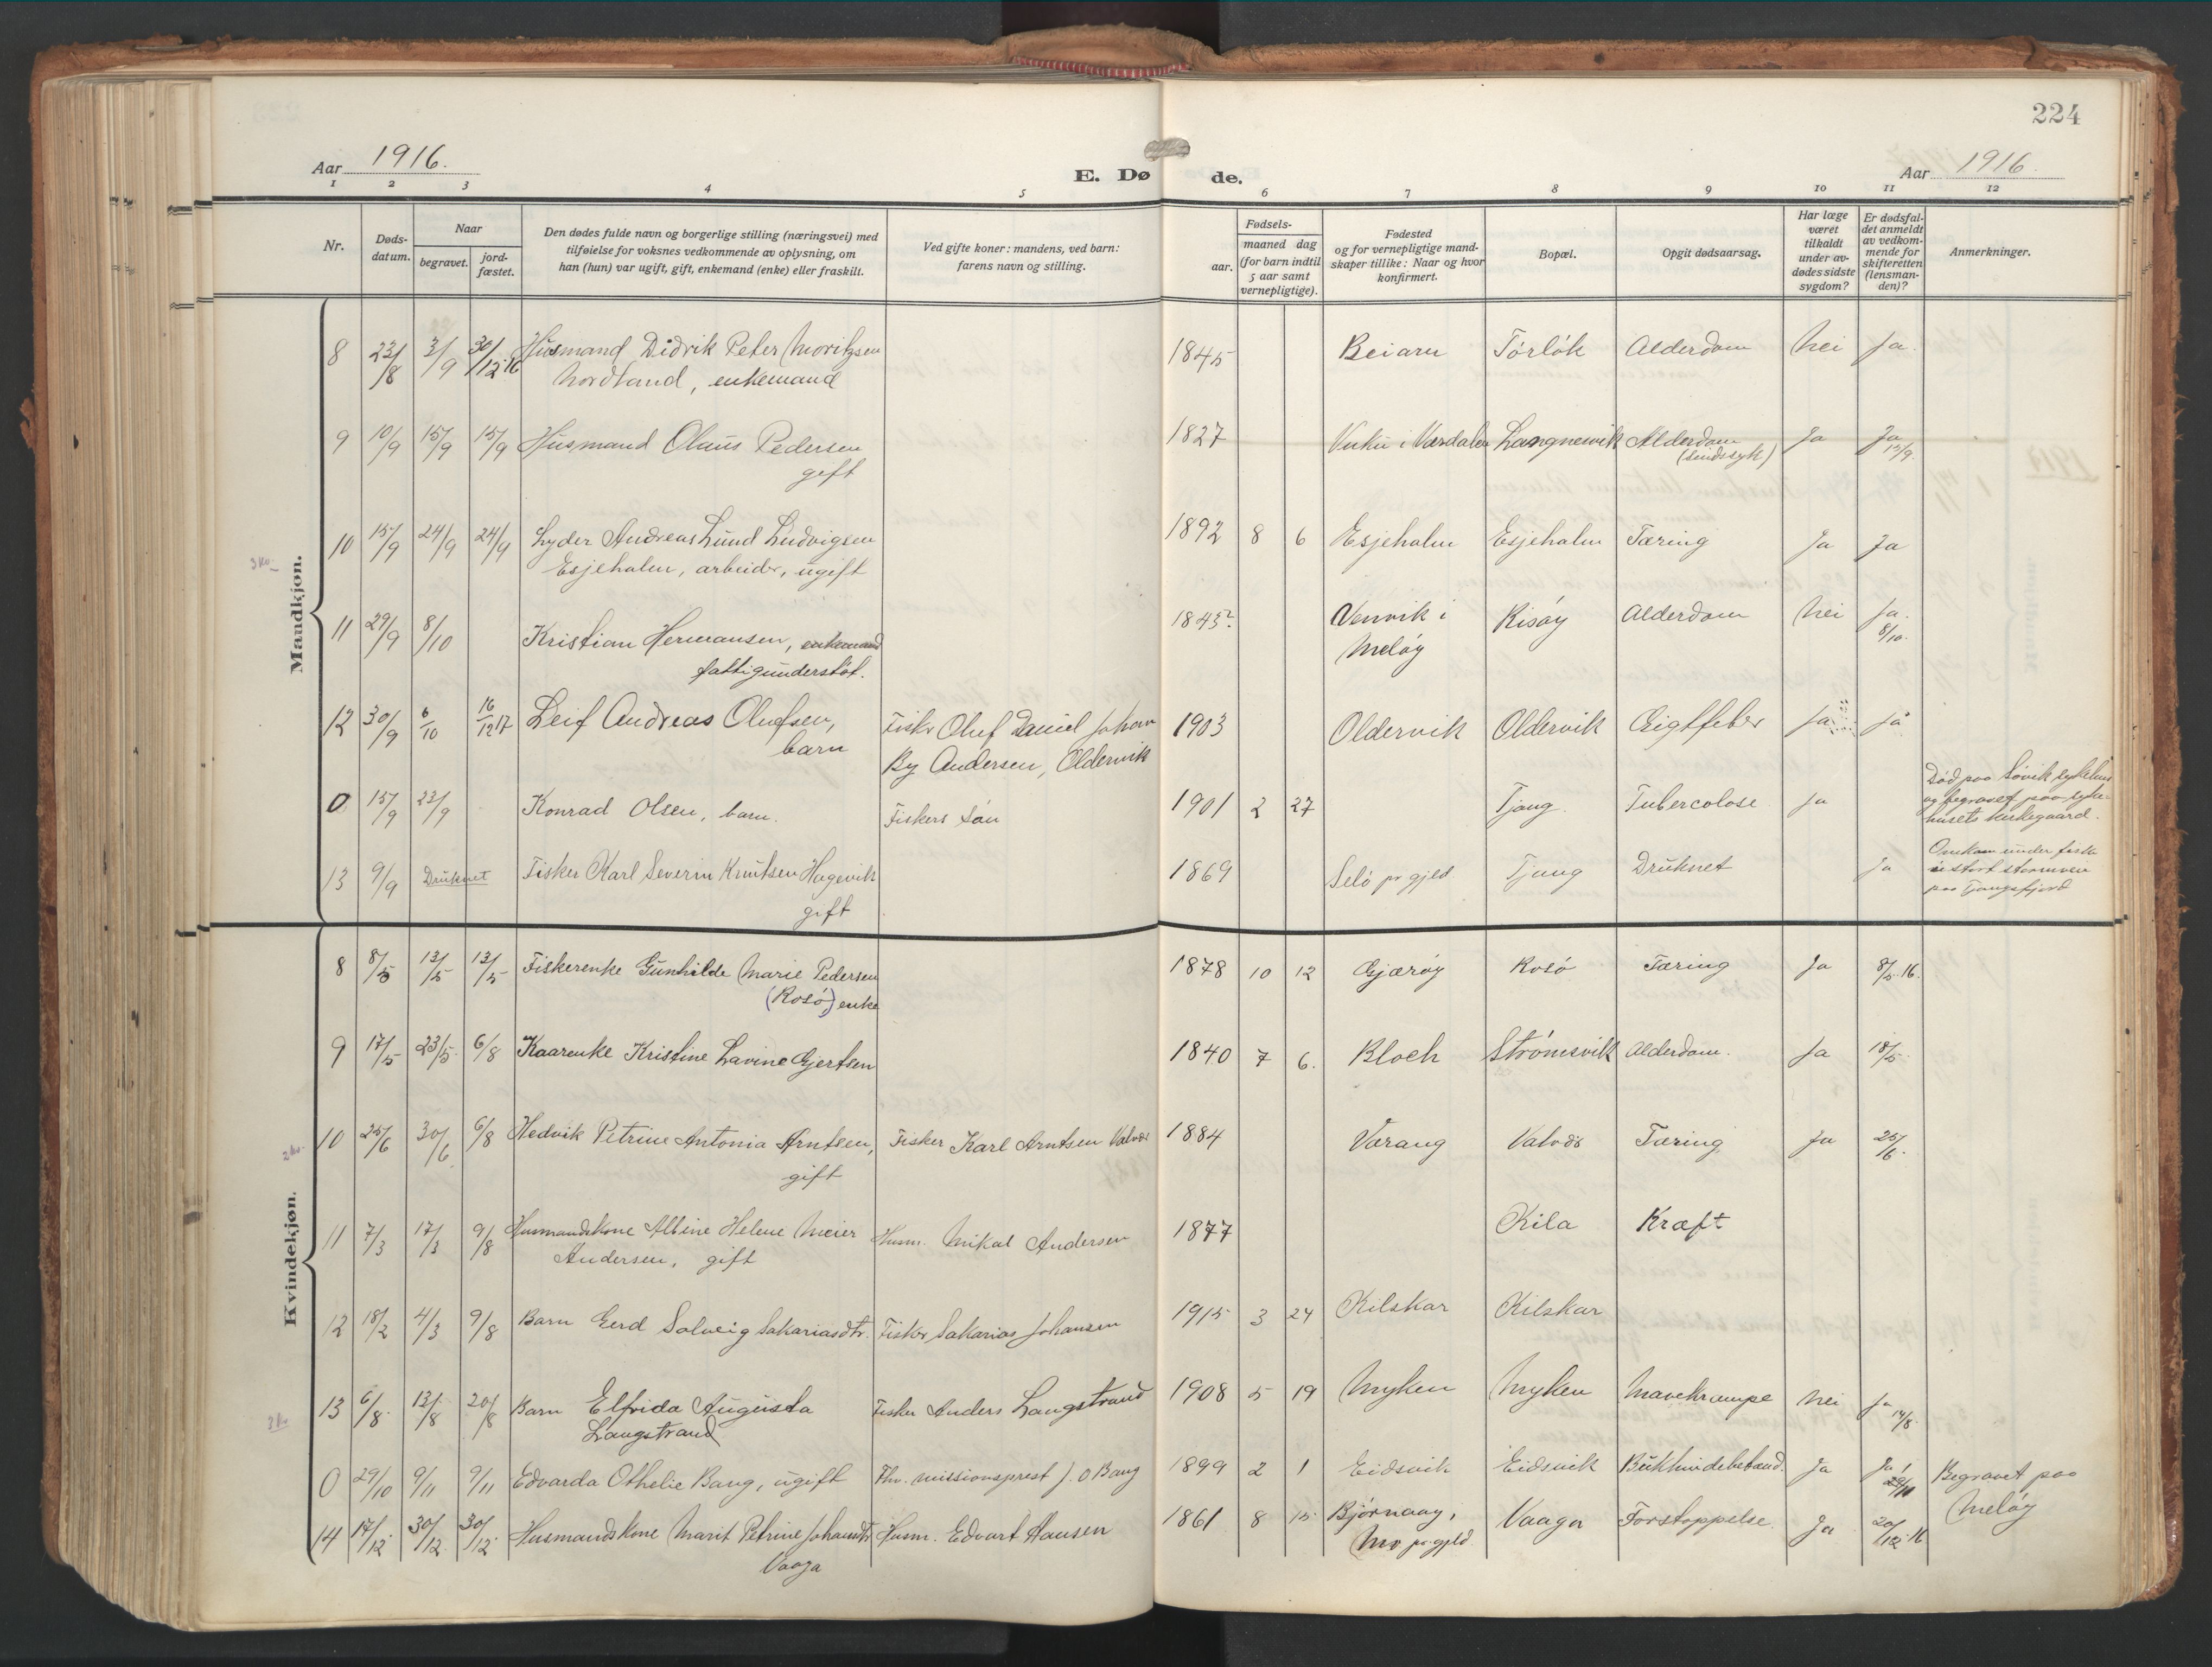 224
Aar 1916.
E. Dø de.
Aar 1916.
1 2 3 4 5 6 7 8 9 10 11 12
Nr.
Døds-
datum.
Naar
begravet.
jord-
fæstet.
Den dødes fulde navn og borgerlige stilling (næringsvei) med
tilføielse for voksnes vedkommende av oplysning, om
han (hun) var ugift, gift, enkemand (enke) eller fraskilt.
Ved gifte koner: mandens, ved barn:
farens navn og stilling.
Fødsels-
aar.
maaned dag
(for barn indtil
5 aar samt
vernepligtige).
Fødested
og for vernepligtige mand-
skaper tillike: Naar og hvor
konfirmert.
Bopæl.
Opgit dødsaarsag.
Har læge
været
tilkaldt
under av-
dødes sidste
sygdom?
Er dødsfal-
det anmeldt
av vedkom-
mende for
skifteretten
(lensman-
den)?
Anmerkninger.
Mandkjøn.
8 23/8 3/9 30/12 16 Husmand Didrik Peter Moritzsen 1845 Beiarn Tórlók Alderdom Nei Ja.
Nordland, enkemand
9 10/9 15/9 15/9 Husmand Olaus Pedersen 1827 Vuku i Værdalen Langnesvik Alderdom Ja Ja
gift (sindssyk) 12/9.
10 15/9 24/9 24/9 Lyder Andreas Lund Ludvigsen 1892 8 6 Esjeholm Esjeholm Tæring Ja Ja
Esjeholm, arbeider, ugift
11 29/9 8/10 Kristian Hermansen, enkemand 1845? Venvik i Risóy Alderdom Nei Ja.
fattigunderstöt. Melóy 8/10.
12 30/9 6/10 16/12 17 Leif Andreas Olufsen, Fisker Oluf Daniel Johan 1903 Oldervik Oldervik Gigtfeber Ja Ja
barn By Andersen, Oldervik
0 15/9 23/9 Konrad Olsen, barn. Fiskers sön 1901 2 27 Tjong. Tubercolose Ja Död paa Sövik sykehus
og begravet paa syke-
husets kirkegaard.
13 9/9 Druknet Fisker Karl Severin Knutsen Hagevik 1869 Seló pr gjeld Tjong Druknet Ja Omkom under fiske
i stort stormvei
paa Tjongsfjord
gift
Kvindekjøn.
8 8/5 13/5 13/5 Fiskerenke Gunhilde Marie Pedersen 1878 10 12 Gjæróy Rosó Tæring Ja 8/5 16.
(Rosó) enke
9 17/5 23/5 6/8 Kaarenke Kristine Lavine Gjertsen 1840 7 6. Bloch Strómsvik Alderdom. Ja 18/5
10 25/6 30/6 6/8 Hedvik Petrine Antonia Arntsen, Fisker Karl Arntsen Valvær 1884 Værang Valvær Tæring Ja 25/6.
gift
11 7/3 17/3 9/8 Husmandskone Albine Helene Meier Husm. Mikal Andersen 1877 Kila Kræft
Andersen, gift
12 18/2 4/3 9/8 Barn Gerd Solveig Sakariasdtr. Fisker Sakarias Johansen 1915 3 24 Kilskar Kilskar
13 6/8 13/8 20/8 Barn Elfrida Augusta Fisker Anders Langstrand 1908 5 19 Myken Myken Mavekrampe Nei Ja
Langstrand 14/8
0 29/10 9/11 9/11 Edvarda Othelie Bang, ugift Fhv. missionsprest J. O Bang 1899 2 1 Eidsvik Eidsvik Bukhindebetænd. Ja Ja Begravet paa
Melóy
14 17/12 30/12 30/12 Husmandskone Marit Petrine Johansdtr Husm. Edvart Hansen 1861 8 15 Bjórnaag, Vaaga Forstoppelse. Ja 20/12 16
Vaaga Mo pr.gjeld.